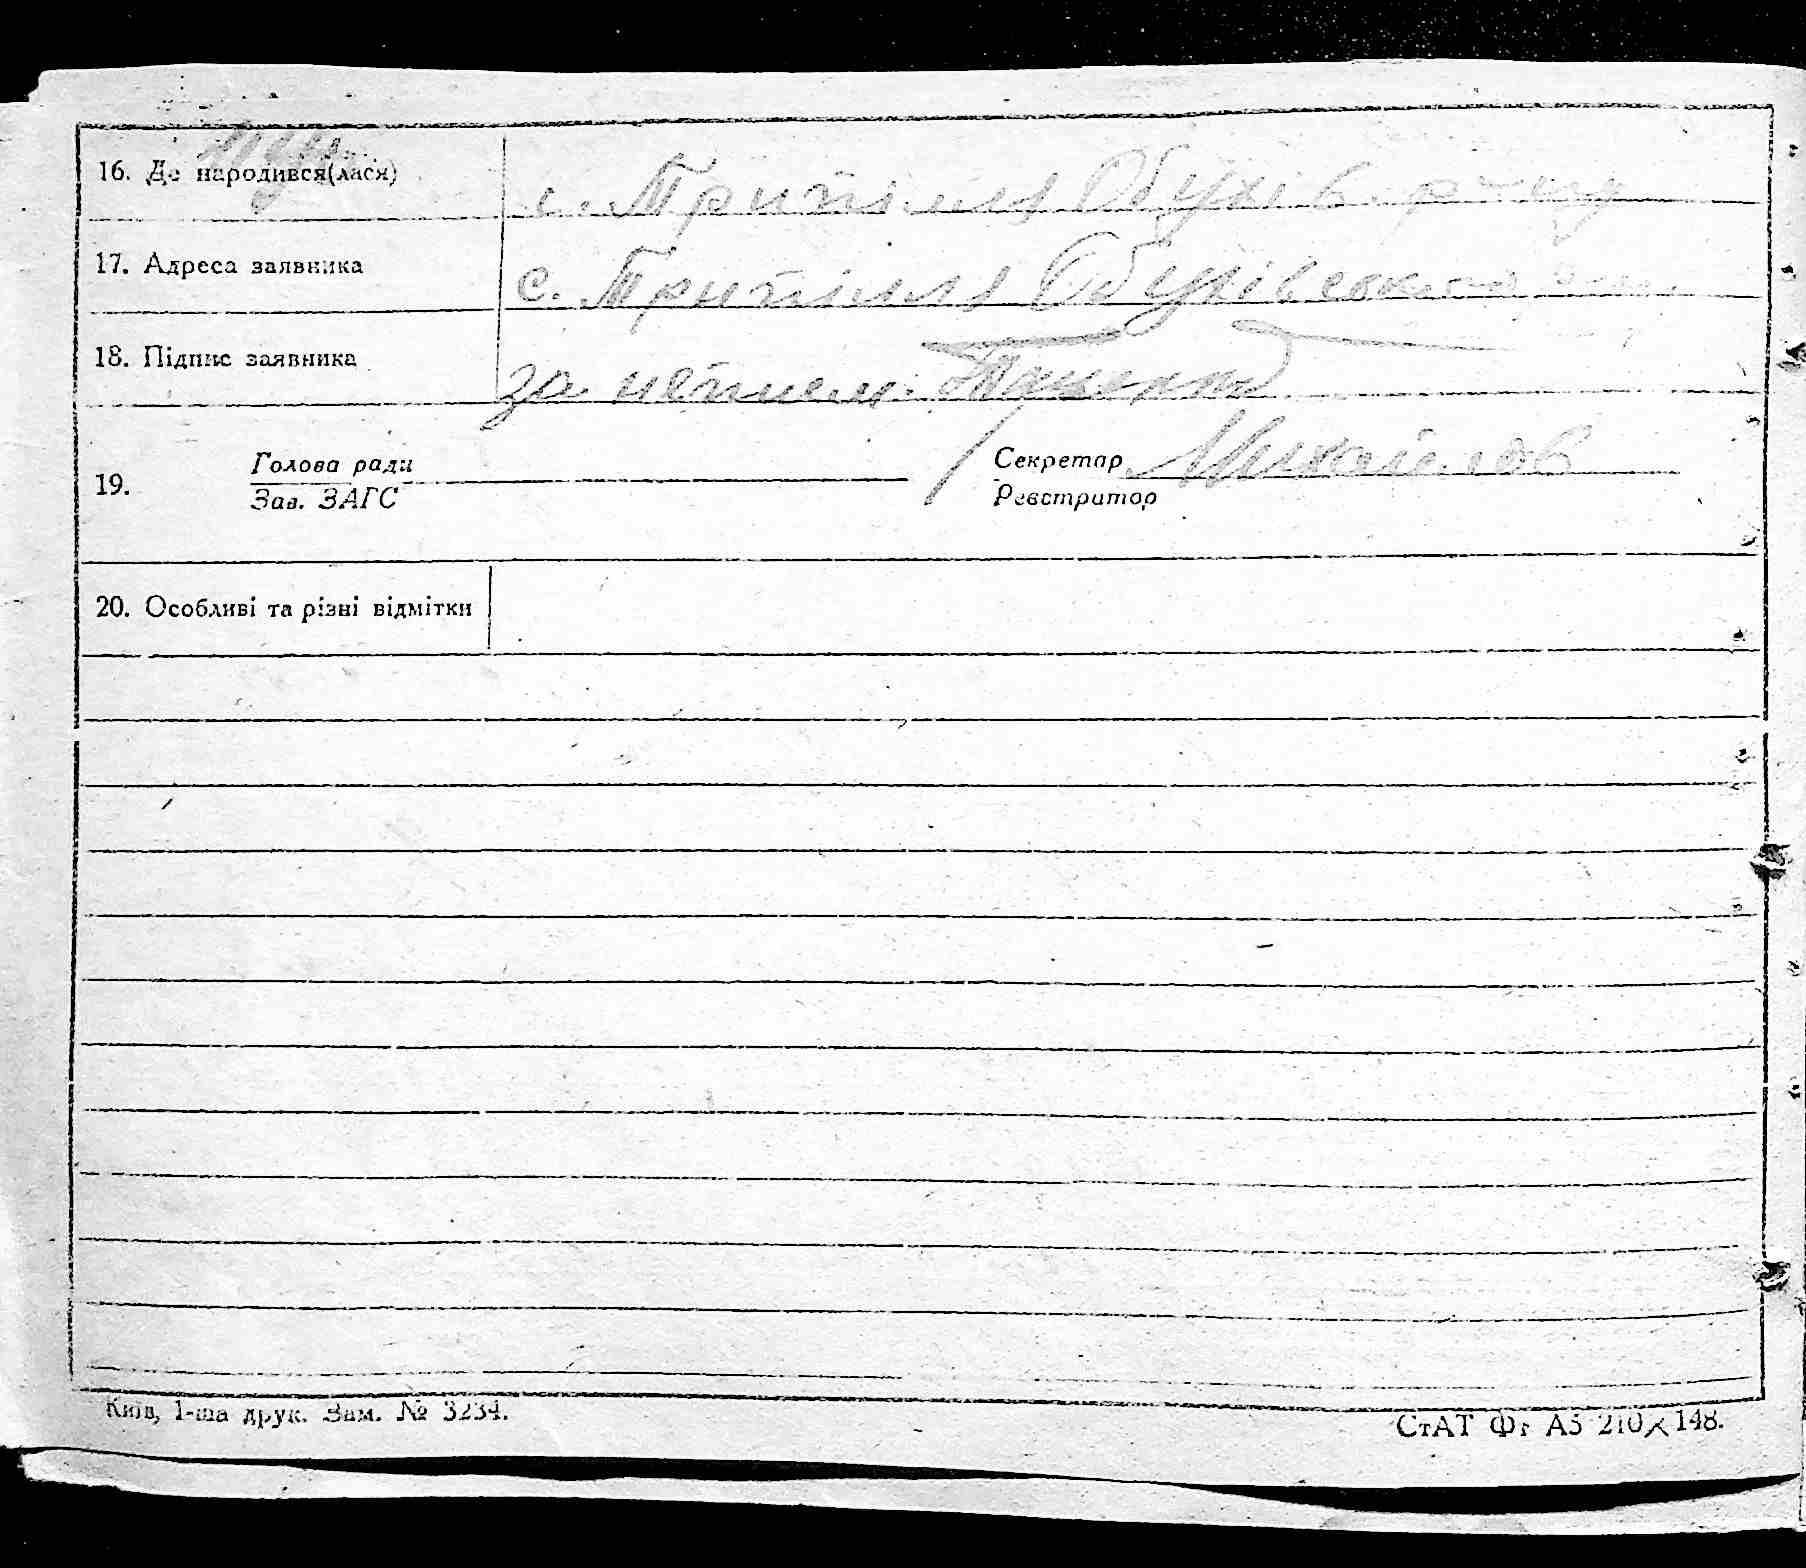 16. Де народився(лася) с. Трипілля Обухів. р-ну
17. Адреса заявника с. Трипілля Обухівського
18. Підпис заявника за непись.
19. Голова ради Секретар Михайлов
Зав. ЗАГС Реєстратор
20. Особливі та різні відмітки
Київ, 1-ша друк. Зам. № 3234.
СтАТ Фт А5 210×148.